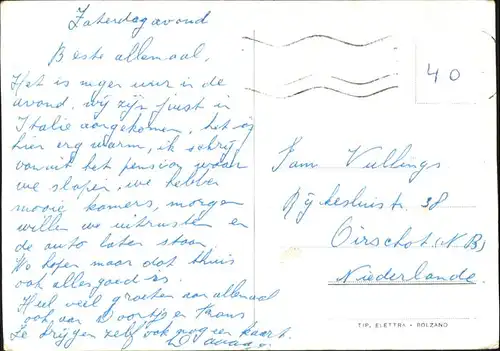 Zaterdagavond
Beste allemaal,
Het is negen uur in de
avond, wij zijn juist in
Italie aangekomen, het is
hier erg warm, ik schrijf
vanuit het pension waar
we slapen, we hebben
mooie kamers, morgen
willen we uitrusten en
de auto laten staan,
We hopen maar dat thuis
ook alles goed is.
Heel veel groeten aan allemaal
ook van Doortje en Frans
Ze krijgen zelf ook nog een kaart.
40
Fam Vullings
Rijkesluisstr. 38
Oirschot (N B)
Niederlande.
TIP. ELETTRA - BOLZANO